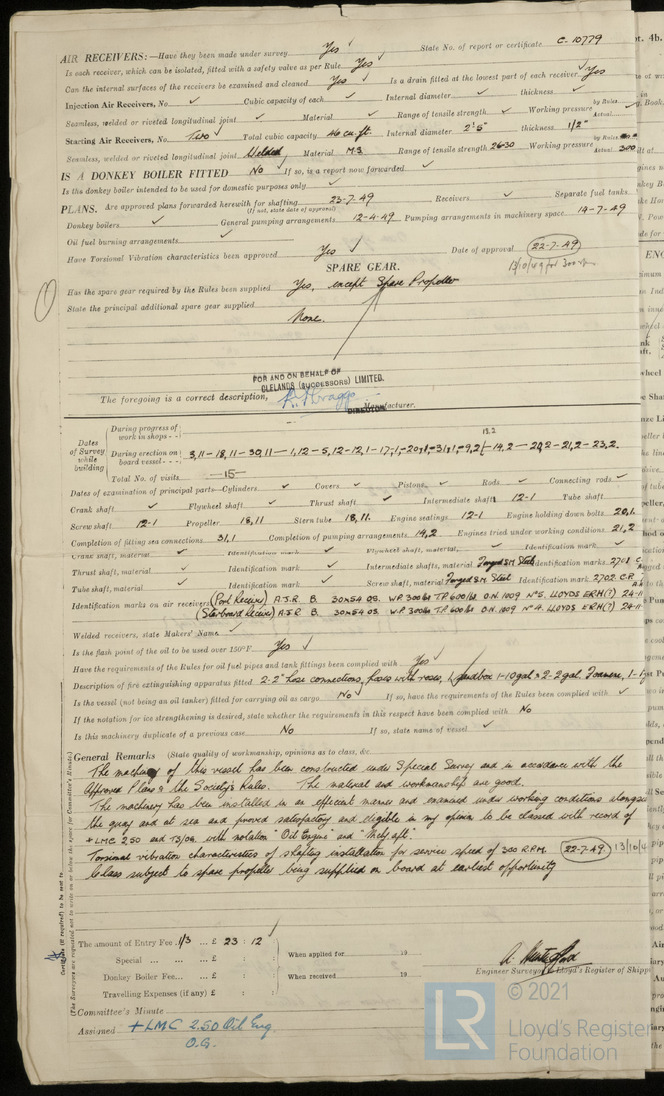 AIR RECEIVERS:—Have they been made under survey Yes ✓ State No. of report or certificate C. 10779
Is each receiver, which can be isolated, fitted with a safety valve as per Rule Yes ✓
Can the internal surfaces of the receivers be examined and cleaned Yes ✓ Is a drain fitted at the lowest part of each receiver Yes
Injection Air Receivers, No. ✓ Cubic capacity of each ✓ Internal diameter ✓ thickness ✓
Seamless, welded or riveted longitudinal joint ✓ Material ✓ Range of tensile strength ✓ Working pressure by Rules Actual
Starting Air Receivers, No. Two Total cubic capacity 46 cu. ft. Internal diameter 2'-5" thickness 1/2"
Seamless, welded or riveted longitudinal joint Welded Material M.S Range of tensile strength 26-30 Working pressure by Rules Actual 300
IS A DONKEY BOILER FITTED No If so, is a report now forwarded ✓
Is the donkey boiler intended to be used for domestic purposes only ✓
PLANS. Are approved plans forwarded herewith for shafting 23-7-49 Receivers ✓ Separate fuel tanks
(If not, state date of approval)
Donkey boilers ✓ General pumping arrangements 12-4-49 Pumping arrangements in machinery space 14-7-49
Oil fuel burning arrangements ✓
Have Torsional Vibration characteristics been approved Yes ✓ Date of approval 22-7-49
13/10/49 for 300 rpm
SPARE GEAR.
Has the spare gear required by the Rules been supplied Yes, except Spare Propeller
State the principal additional spare gear supplied
None.
FOR AND ON BEHALF OF
CLELANDS (SUCCESSORS) LIMITED.
The foregoing is a correct description,
DIRECTOR Manufacturer.
Dates of Survey while building
During progress of work in shops - -
13.2
During erection on board vessel - - 3,11 - 18,11 - 30,11 - 1,12 - 5,12 - 12,1 - 17,1 - 20,1 - 31,1 - 9,2 - 14,2 - 20,2 - 21,2 - 23,2.
Total No. of visits —15—
Dates of examination of principal parts—Cylinders ✓ Covers ✓ Pistons ✓ Rods ✓ Connecting rods ✓
Crank shaft ✓ Flywheel shaft ✓ Thrust shaft ✓ Intermediate shafts 12-1 Tube shaft
Screw shaft 12-1 Propeller 18,11 Stern tube 18,11. Engine seatings 12-1 Engine holding down bolts 20,1.
Completion of fitting sea connections 31,1 Completion of pumping arrangements 14,2 Engines tried under working conditions 21,2
Crank shaft, material ✓ Identification mark ✓ Flywheel shaft, material ✓ Identification mark ✓
Thrust shaft, material ✓ Identification mark ✓ Intermediate shafts, material Forged S.M. Steel Identification marks 2701 C
Tube shaft, material ✓ Identification mark ✓ Screw shaft, material Forged S.M. Steel Identification mark 2702 C.P.
Identification marks on air receivers (Port Receiver) A.J.R. B. 30 W.P. 300 T.P. 600 O.N. 1809 No 5. LLOYDS ERM(?) 24-11
(Starboard Receiver) A.J.R B. 30 W.P. 300 T.P. 600 O.N. 1809 No 4. LLOYDS ERM(?) 24-11
Welded receivers, state Makers' Name
Is the flash point of the oil to be used over 150°F. Yes ✓
Have the requirements of the Rules for oil fuel pipes and tank fittings been complied with Yes ✓
Description of fire extinguishing apparatus fitted 2-2" hose connections, hoses with roses, 1 Sandbox 1-10 gal & 2-2 gal. Foamene, 1-1 g
Is the vessel (not being an oil tanker) fitted for carrying oil as cargo No ✓ If so, have the requirements of the Rules been complied with ✓
If the notation for ice strengthening is desired, state whether the requirements in this respect have been complied with No
Is this machinery duplicate of a previous case No If so, state name of vessel ✓
General Remarks (State quality of workmanship, opinions as to class, &c.
The machinery of this vessel has been constructed under Special Survey and in accordance with the
Approved Plans & the Society's Rules. The material and workmanship are good.
The machinery has been installed in an efficient manner and examined under working conditions alongsi
the quay and at sea and proved satisfactory and eligible in my opinion to be classed with record of
+LMC 2,50 and TS/OG. with notation "Oil Engine" and "Mchy aft".
Torsional vibration characteristics of shafting installation for service speed of 300 R.P.M. 22-7-49. 13/10/4
Class subject to spare propeller being supplied on board at earliest opportunity
The amount of Entry Fee 1/3 ... £ 23 : 12
Special ... ... £ :
Donkey Boiler Fee... ... £ :
Travelling Expenses (if any) £ :
When applied for 19
When received 19
Engine Surveyor to Lloyd's Register of Shipp
Committee's Minute
Assigned +LMC 2.50 Oil Eng
O.G.
Certificate (if required) to be sent to
(The Surveyors are requested not to write on or below the space for Committee's Minute.)
LR © 2021
Lloyd's Register
Foundation